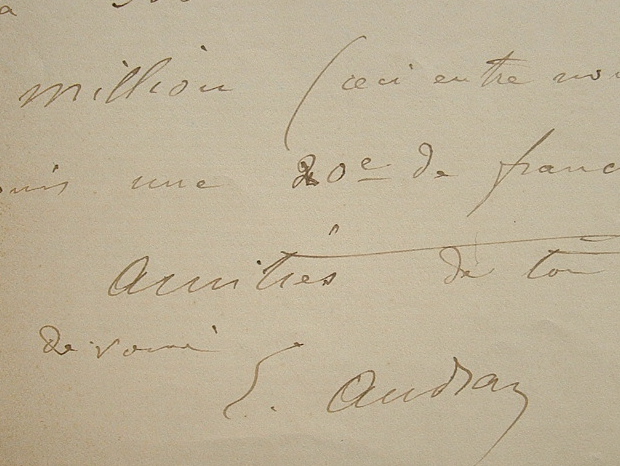 million (ceci entre nou
uis une 20e de franc
Amitiés de ton
devoué
E. Audran